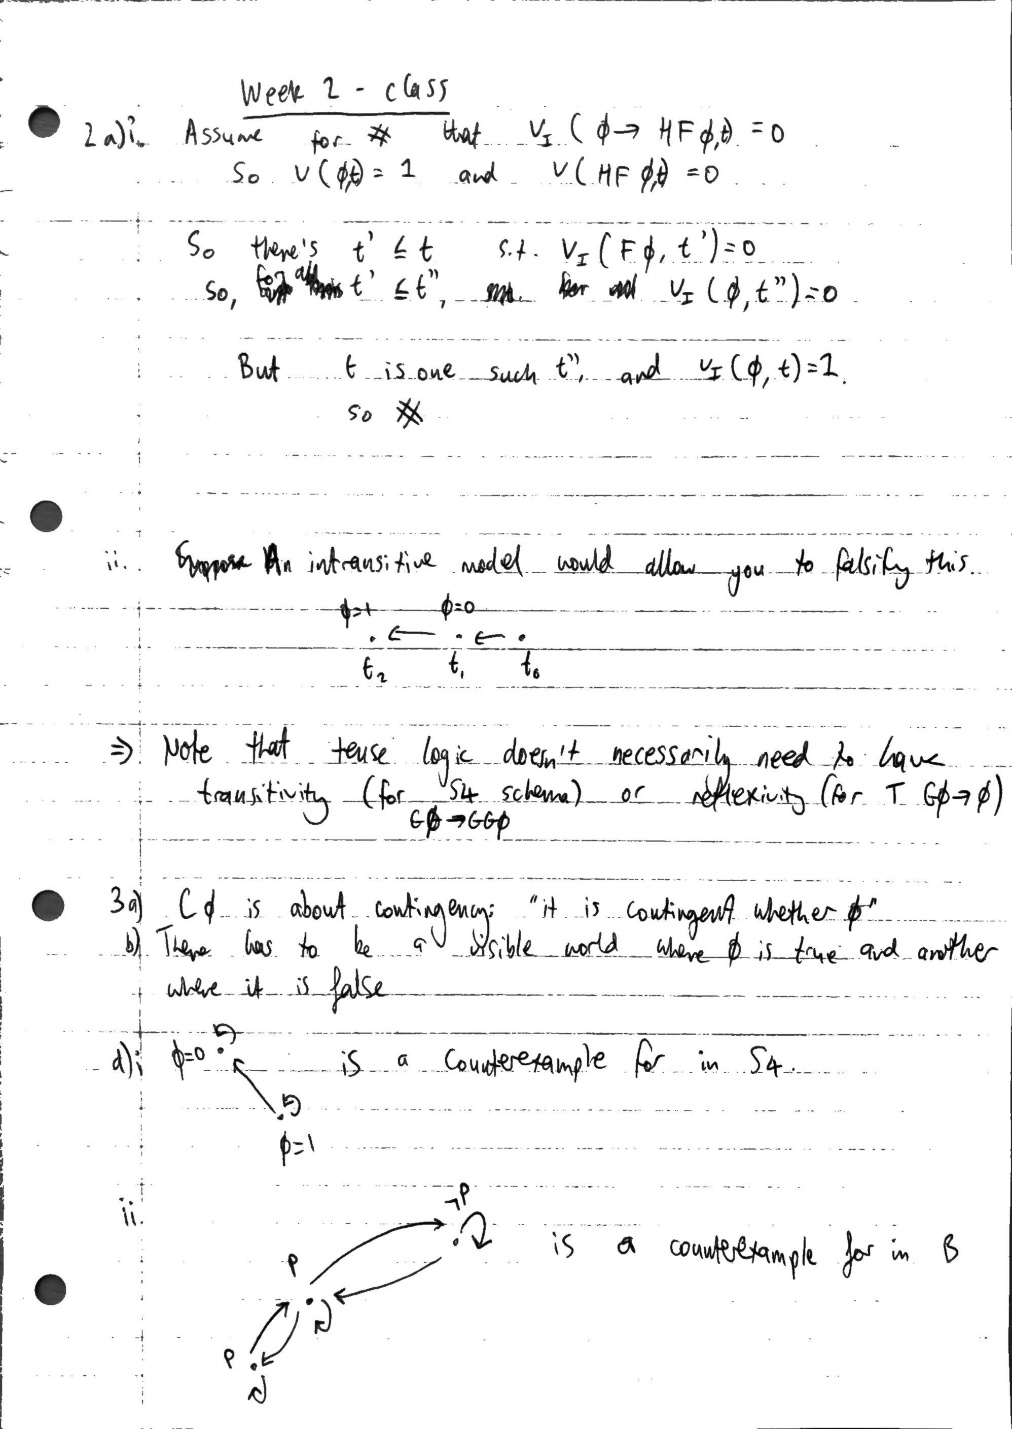 Week 2 - class
2a)i. Assume for ※ that V_I (ϕ→ HFϕ,t) = 0
So V(ϕ,t) = 1 and V(HF ϕ,t) = 0
So there's t' ≤ t s.t. V_I (Fϕ, t') = 0
So, for all t' ≤ t'', V_I (ϕ, t'') = 0
But t is one such t'', and V_I (ϕ, t) = 1.
so ※
ii. An intransitive model would allow you to falsify this.
ϕ=1 ϕ=0
. ← . ← .
t₂ t₁ t₀
⇒ Note that tense logic doesn't necessarily need to have
transitivity (for S4 schema) or reflexivity (for T Gϕ→ϕ)
Gϕ→GGϕ
3a) Cϕ is about contingency: "it is contingent whether ϕ"
b) There has to be a visible world where ϕ is true and another
where it is false
d)i ϕ=0 is a counterexample for in S4.
ϕ=1
ii. ¬P
is a counterexample for in B
P
P